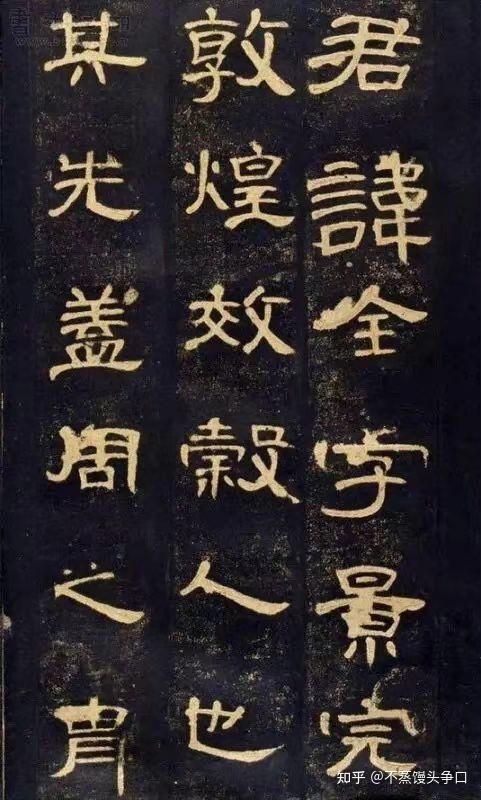 君諱全字景完
敦煌效穀人也
其先蓋周之胄
知乎 @不蒸馒头争口